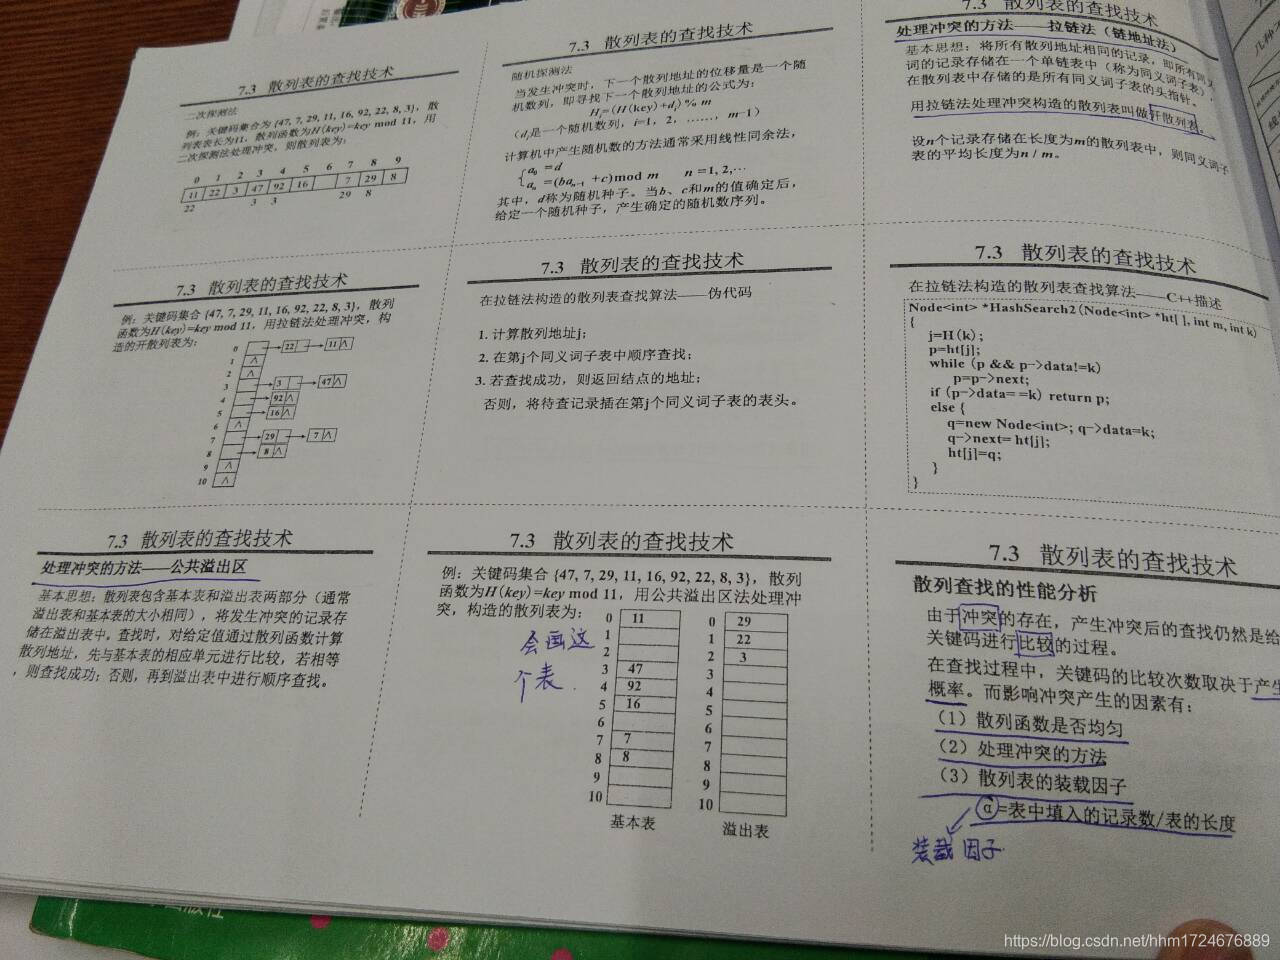 7.3 散列表的查找技术
二次探测法
例：关键码集合为 {47, 7, 29, 11, 16, 92, 22, 8, 3}，散
列表表长为11，散列函数为H(key)=key mod 11，用
二次探测法处理冲突，则散列表为：
0 1 2 3 4 5 6 7 8 9
11 22 3 47 92 16 7 29 8
22 3 3 29 8
7.3 散列表的查找技术
随机探测法
当发生冲突时，下一个散列地址的位移量是一个随
机数列，即寻找下一个散列地址的公式为：
Hi=(H(key)+di)% m
（di是一个随机数列，i=1，2，……，m－1）
计算机中产生随机数的方法通常采用线性同余法，
a0 =d
an =(ban-1 +c)mod m n =1, 2,…
其中，d称为随机种子。当b、c和m的值确定后，
给定一个随机种子，产生确定的随机数序列。
7.3 散列表的查找技术
处理冲突的方法——拉链法（链地址法）
基本思想：将所有散列地址相同的记录，即所有同义
词的记录存储在一个单链表中（称为同义词子表），
在散列表中存储的是所有同义词子表的头指针。
用拉链法处理冲突构造的散列表叫做开散列表。
设n个记录存储在长度为m的散列表中，则同义词子
表的平均长度为n / m。
7.3 散列表的查找技术
例：关键码集合 {47, 7, 29, 11, 16, 92, 22, 8, 3}，散列
函数为H(key)=key mod 11，用拉链法处理冲突，构
造的开散列表为：
0 22 11 ∧
1 ∧
2 ∧
3 3 47 ∧
4 92 ∧
5 16 ∧
6 ∧
7 29 7 ∧
8 8 ∧
9 ∧
10 ∧
7.3 散列表的查找技术
在拉链法构造的散列表查找算法——伪代码
1. 计算散列地址j；
2. 在第j个同义词子表中顺序查找；
3. 若查找成功，则返回结点的地址；
否则，将待查记录插在第j个同义词子表的表头。
7.3 散列表的查找技术
在拉链法构造的散列表查找算法——C++描述
Node<int> *HashSearch2 (Node<int> *ht[ ], int m, int k)
{
j=H(k);
p=ht[j];
while (p && p->data!=k)
p=p->next;
if (p->data= =k) return p;
else {
q=new Node<int>; q->data=k;
q->next= ht[j];
ht[j]=q;
}
}
7.3 散列表的查找技术
处理冲突的方法——公共溢出区
基本思想：散列表包含基本表和溢出表两部分（通常
溢出表和基本表的大小相同），将发生冲突的记录存
储在溢出表中。查找时，对给定值通过散列函数计算
散列地址，先与基本表的相应单元进行比较，若相等
，则查找成功；否则，再到溢出表中进行顺序查找。
7.3 散列表的查找技术
例：关键码集合 {47, 7, 29, 11, 16, 92, 22, 8, 3}，散列
函数为H(key)=key mod 11，用公共溢出区法处理冲
突，构造的散列表为：
会画这
个表.
0 11
1
2
3 47
4 92
5 16
6
7 7
8 8
9
10
基本表
0 29
1 22
2 3
3
4
5
6
7
8
9
10
溢出表
7.3 散列表的查找技术
散列查找的性能分析
由于冲突的存在，产生冲突后的查找仍然是给
关键码进行比较的过程。
在查找过程中，关键码的比较次数取决于产生
概率。而影响冲突产生的因素有：
（1）散列函数是否均匀
（2）处理冲突的方法
（3）散列表的装载因子
α=表中填入的记录数/表的长度
装载因子
几种
https://blog.csdn.net/hhm1724676889